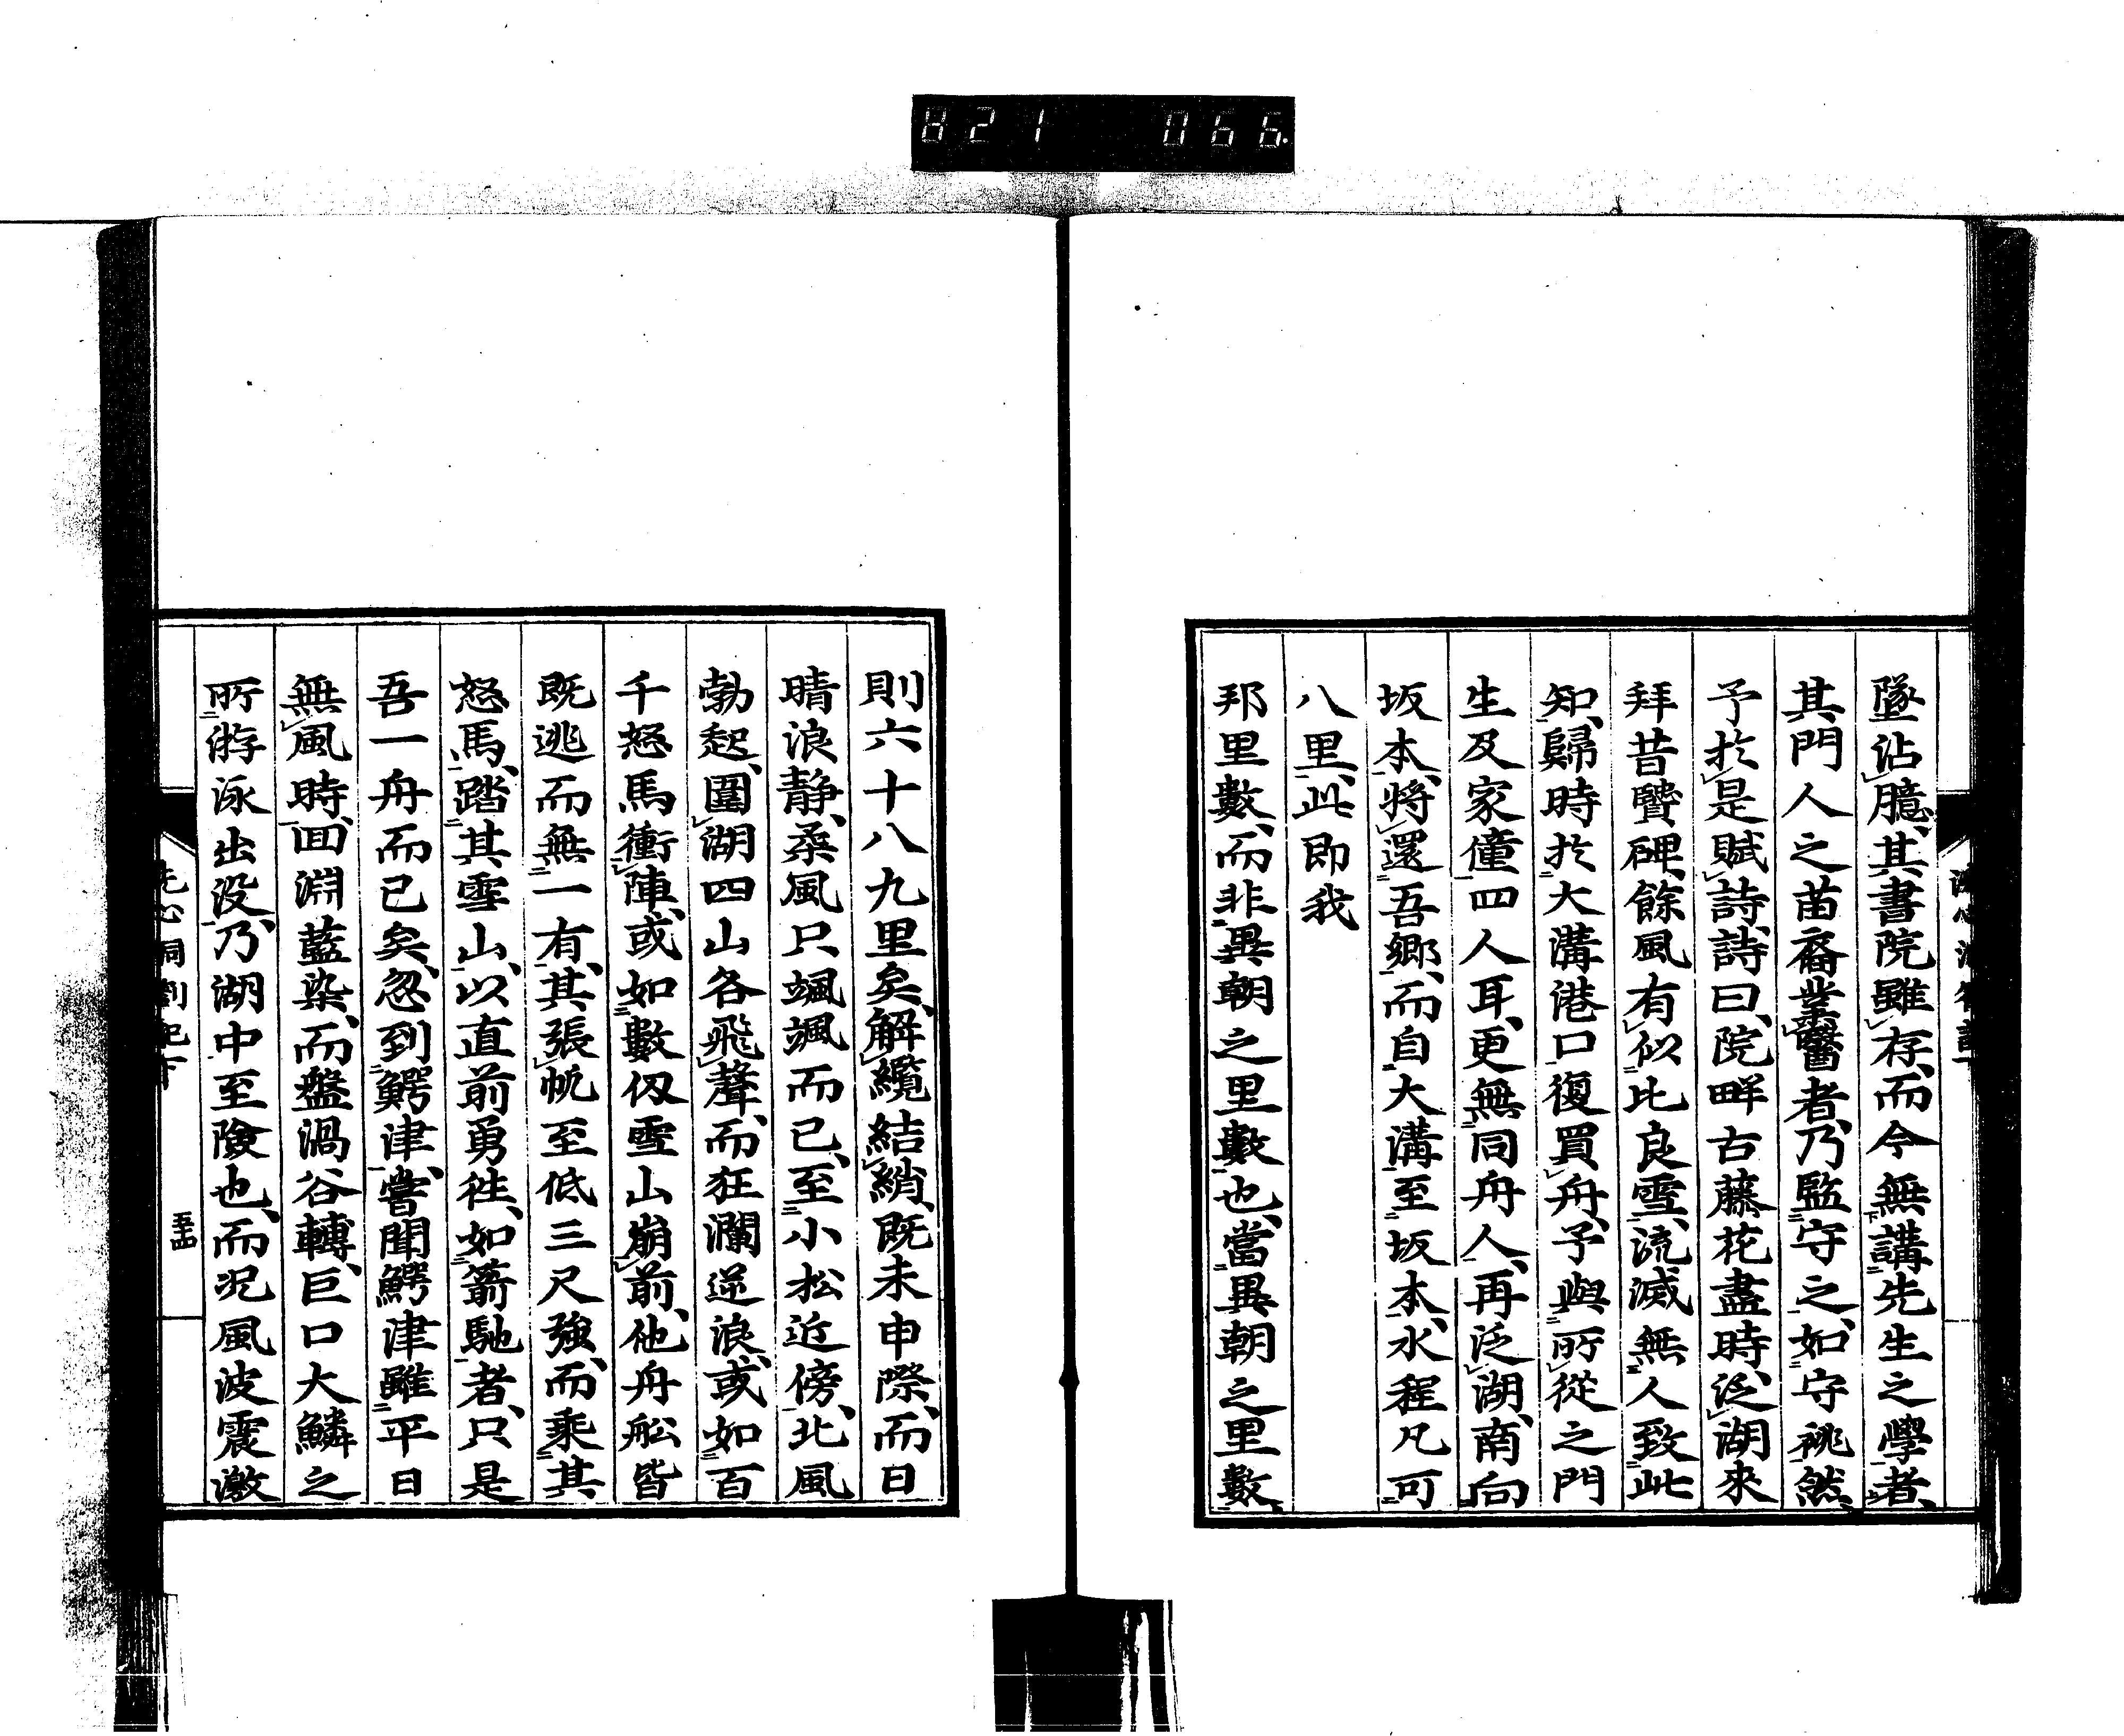 821 066
墜沾臆、其書院雖存、而今無講先生之學者、
其門人之苗裔業醫者、乃監守之、如守祧然、
予於是賦詩、詩曰、院畔古藤花盡時、泛湖來
拜昔賢碑、餘風有似比良雪、流滅無人致此
知、歸時於大溝港口復買舟、予與所從之門
生及家僮四人耳、更無同舟人、再泛湖、南向
坂本、將還吾鄉、而自大溝至坂本、水程凡可
八里、此即我
邦里數、而非異朝之里數也、當異朝之里數、
則六十八九里矣、解纜結綃、既未申際、而日
晴浪靜、柔風只颯颯而已、至小松近傍、北風
勃起、圍湖四山各飛聲、而狂瀾逆浪、或如百
千怒馬衝陣、或如數仭雪山崩前、他舟舩皆
既逃而無一有、其張帆至低三尺強、而乘其
怒馬、踏其雪山、以直前勇往、如箭馳者、只是
吾一舟而已矣、忽到鰐津、嘗聞鰐津雖平日
無風時、回淵藍染、而盤渦谷轉、巨口大鱗之
所游泳出没、乃湖中至險也、而況風波震激
洗心洞劄記下
至四